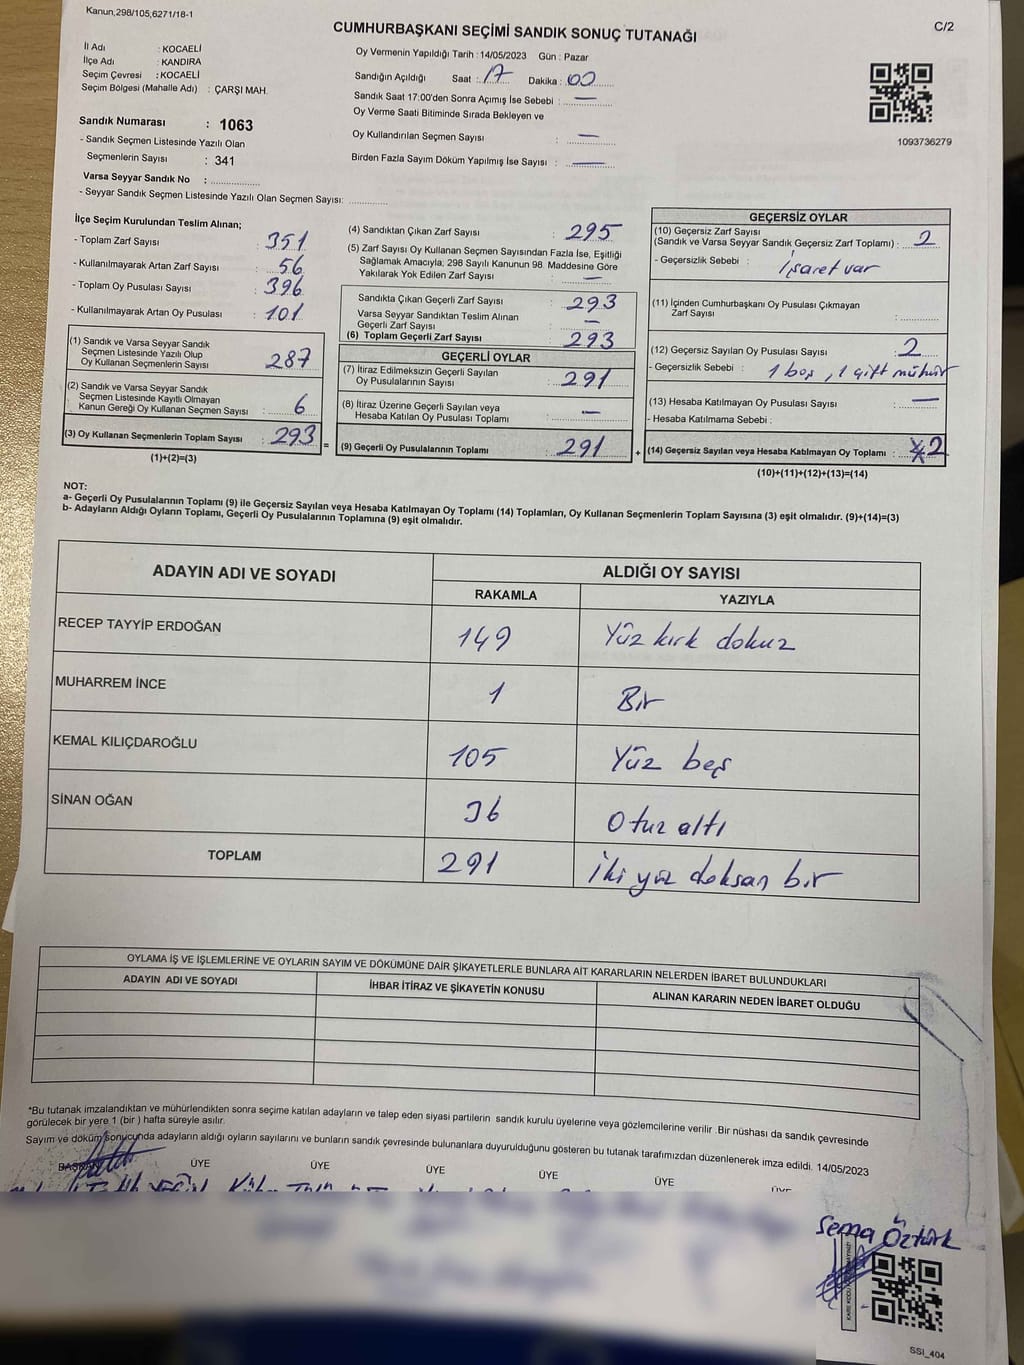 Kanun,298/105,6271/18-1
C/2
CUMHURBAŞKANI SEÇİMİ SANDIK SONUÇ TUTANAĞI
İl Adı : KOCAELİ
İlçe Adı : KANDIRA
Seçim Çevresi : KOCAELİ
Seçim Bölgesi (Mahalle Adı) : ÇARŞI MAH.
Sandık Numarası : 1063
- Sandık Seçmen Listesinde Yazılı Olan
Seçmenlerin Sayısı : 341
Varsa Seyyar Sandık No : 
- Seyyar Sandık Seçmen Listesinde Yazılı Olan Seçmen Sayısı:
Oy Vermenin Yapıldığı Tarih : 14/05/2023 Gün : Pazar
Sandığın Açıldığı Saat : 17 Dakika : 00
Sandık Saat 17:00'den Sonra Açımış İse Sebebi : —
Oy Verme Saati Bitiminde Sırada Bekleyen ve
Oy Kullandırılan Seçmen Sayısı : —
Birden Fazla Sayım Döküm Yapılmış İse Sayısı : —
1093736279
İlçe Seçim Kurulundan Teslim Alınan;
- Toplam Zarf Sayısı : 351
- Kullanılmayarak Artan Zarf Sayısı : 56
- Toplam Oy Pusulası Sayısı : 396
- Kullanılmayarak Artan Oy Pusulası : 101
(1) Sandık ve Varsa Seyyar Sandık
Seçmen Listesinde Yazılı Olup
Oy Kullanan Seçmenlerin Sayısı : 287
(2) Sandık ve Varsa Seyyar Sandık
Seçmen Listesinde Kayıtlı Olmayan
Kanun Gereği Oy Kullanan Seçmen Sayısı : 6
(3) Oy Kullanan Seçmenlerin Toplam Sayısı : 293
(1)+(2)=(3)
(4) Sandıktan Çıkan Zarf Sayısı : 295
(5) Zarf Sayısı Oy Kullanan Seçmen Sayısından Fazla İse, Eşitliği
Sağlamak Amacıyla; 298 Sayılı Kanunun 98. Maddesine Göre
Yakılarak Yok Edilen Zarf Sayısı : —
Sandıkta Çıkan Geçerli Zarf Sayısı : 293
Varsa Seyyar Sandıktan Teslim Alınan
Geçerli Zarf Sayısı : —
(6) Toplam Geçerli Zarf Sayısı : 293
GEÇERLİ OYLAR
(7) İtiraz Edilmeksizin Geçerli Sayılan
Oy Pusulalarının Sayısı : 291
(8) İtiraz Üzerine Geçerli Sayılan veya
Hesaba Katılan Oy Pusulası Toplamı : —
(9) Geçerli Oy Pusulalarının Toplamı : 291
GEÇERSİZ OYLAR
(10) Geçersiz Zarf Sayısı
(Sandık ve Varsa Seyyar Sandık Geçersiz Zarf Toplamı) : 2
- Geçersizlik Sebebi : İşaret var
(11) İçinden Cumhurbaşkanı Oy Pusulası Çıkmayan
Zarf Sayısı :
(12) Geçersiz Sayılan Oy Pusulası Sayısı : 2
- Geçersizlik Sebebi : 1 boş, 1 çift mühür
(13) Hesaba Katılmayan Oy Pusulası Sayısı : —
- Hesaba Katılmama Sebebi :
(14) Geçersiz Sayılan veya Hesaba Katılmayan Oy Toplamı : 2
(10)+(11)+(12)+(13)=(14)
NOT:
a- Geçerli Oy Pusulalarının Toplamı (9) ile Geçersiz Sayılan veya Hesaba Katılmayan Oy Toplamı (14) Toplamları, Oy Kullanan Seçmenlerin Toplam Sayısına (3) eşit olmalıdır. (9)+(14)=(3)
b- Adayların Aldığı Oyların Toplamı, Geçerli Oy Pusulalarının Toplamına (9) eşit olmalıdır.
ADAYIN ADI VE SOYADI
ALDIĞI OY SAYISI
RAKAMLA YAZIYLA
RECEP TAYYİP ERDOĞAN 149 Yüz kırk dokuz
MUHARREM İNCE 1 Bir
KEMAL KILIÇDAROĞLU 105 Yüz beş
SİNAN OĞAN 36 Otuz altı
TOPLAM 291 İki yüz doksan bir
OYLAMA İŞ VE İŞLEMLERİNE VE OYLARIN SAYIM VE DÖKÜMÜNE DAİR ŞİKAYETLERLE BUNLARA AİT KARARLARIN NELERDEN İBARET BULUNDUKLARI
ADAYIN ADI VE SOYADI İHBAR İTİRAZ VE ŞİKAYETİN KONUSU ALINAN KARARIN NEDEN İBARET OLDUĞU
*Bu tutanak imzalandıktan ve mühürlendikten sonra seçime katılan adayların ve talep eden siyasi partilerin sandık kurulu üyelerine veya gözlemcilerine verilir. Bir nüshası da sandık çevresinde
görülecek bir yere 1 (bir ) hafta süreyle asılır.
Sayım ve döküm sonucunda adayların aldığı oyların sayılarını ve bunların sandık çevresinde bulunanlara duyurulduğunu gösteren bu tutanak tarafımızdan düzenlenerek imza edildi. 14/05/2023
BAŞKAN ÜYE ÜYE ÜYE ÜYE ÜYE ÜYE
Sema Öztürk
SSI_404